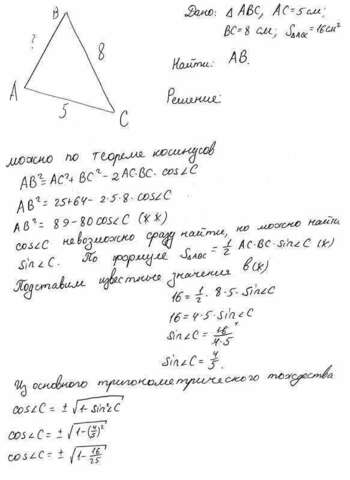 Дано: △ ABC, AC = 5 см;
BC = 8 см; S△ABC = 16 см²
Найти: AB.
Решение:
B
?
8
A
5
C
можно по теореме косинусов
AB² = AC² + BC² - 2AC·BC·cos∠C
AB² = 25 + 64 - 2·5·8·cos∠C
AB² = 89 - 80cos∠C (**)
cos∠C невозможно сразу найти, но можно найти
sin∠C. По формуле S△ABC = 1/2 AC·BC·sin∠C (*)
Подставим известные значения в (*)
16 = 1/2 · 8·5·sin∠C
16 = 4·5·sin∠C
sin∠C = 16/4·5
sin∠C = 4/5.
Из основного тригонометрического тождества
cos∠C = ± √1-sin²∠C
cos∠C = ± √1-(4/5)²
cos∠C = ± √1-16/25